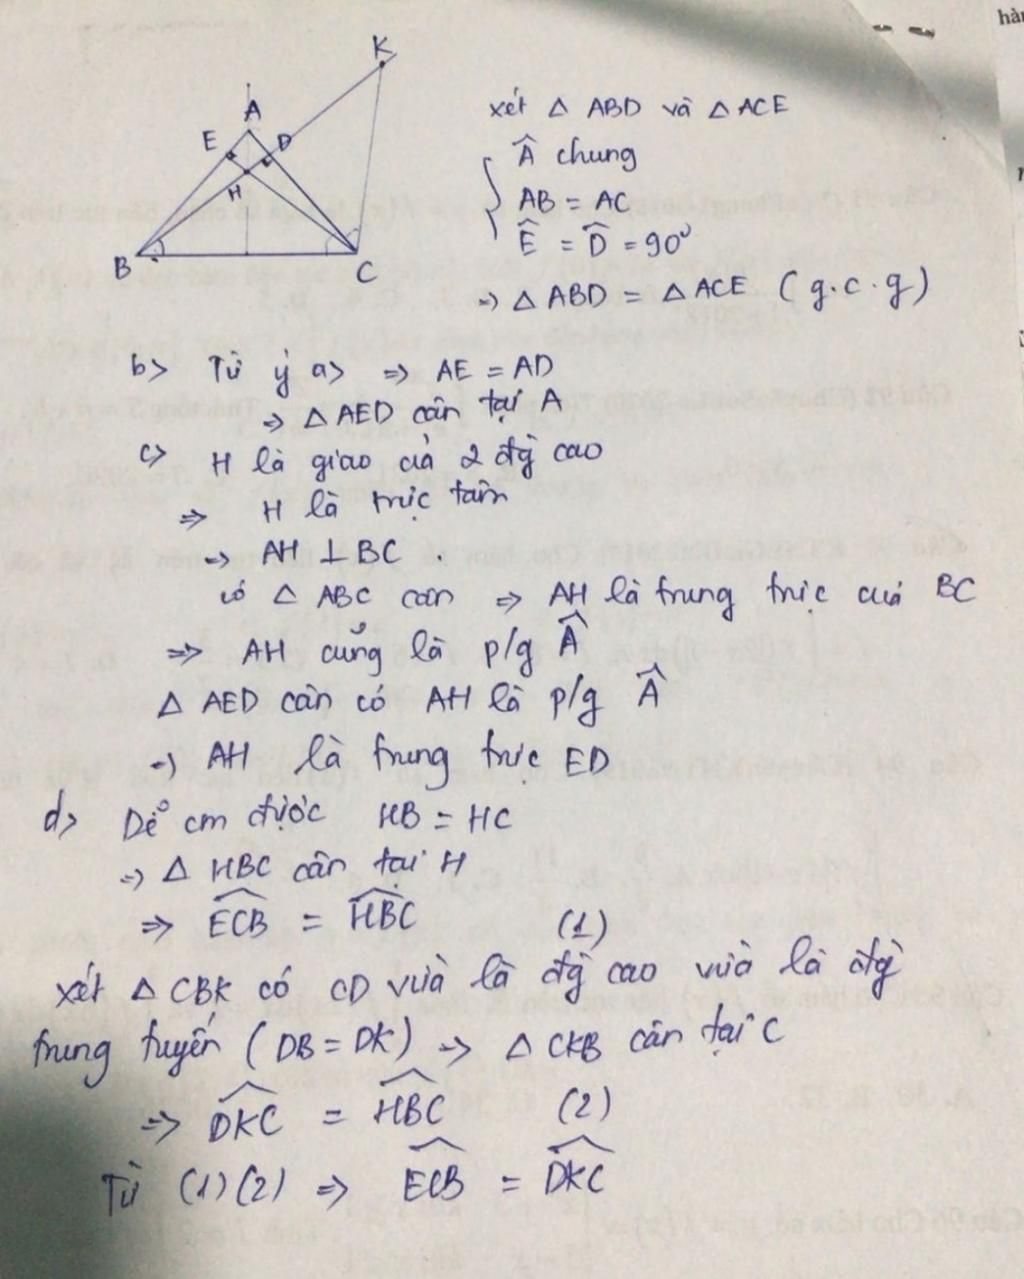 K
A
E
D
H
B
C
xét △ ABD và △ ACE
Â chung
AB = AC
Ê = D̂ = 90°
→ △ ABD = △ ACE (g.c.g)
b> Từ ý a> => AE = AD
=> △ AED cân tại A
c> H là giao của 2 đg̀ cao
=> H là trực tâm
→ AH ⊥ BC
có △ ABC cân => AH là trung trực của BC
=> AH cũng là p/g Â
△ AED cân có AH là p/g Â
→ AH là trung trực ED
d> Dễ cm được HB = HC
=> △ HBC cân tại H
=> ECB = HBC (1)
xét △ CBK có CD vừa là đg̀ cao vừa là đg̀
trung tuyến (DB = DK) → △ CKB cân tại C
=> DKC = HBC (2)
Từ (1)(2) => ECB = DKC